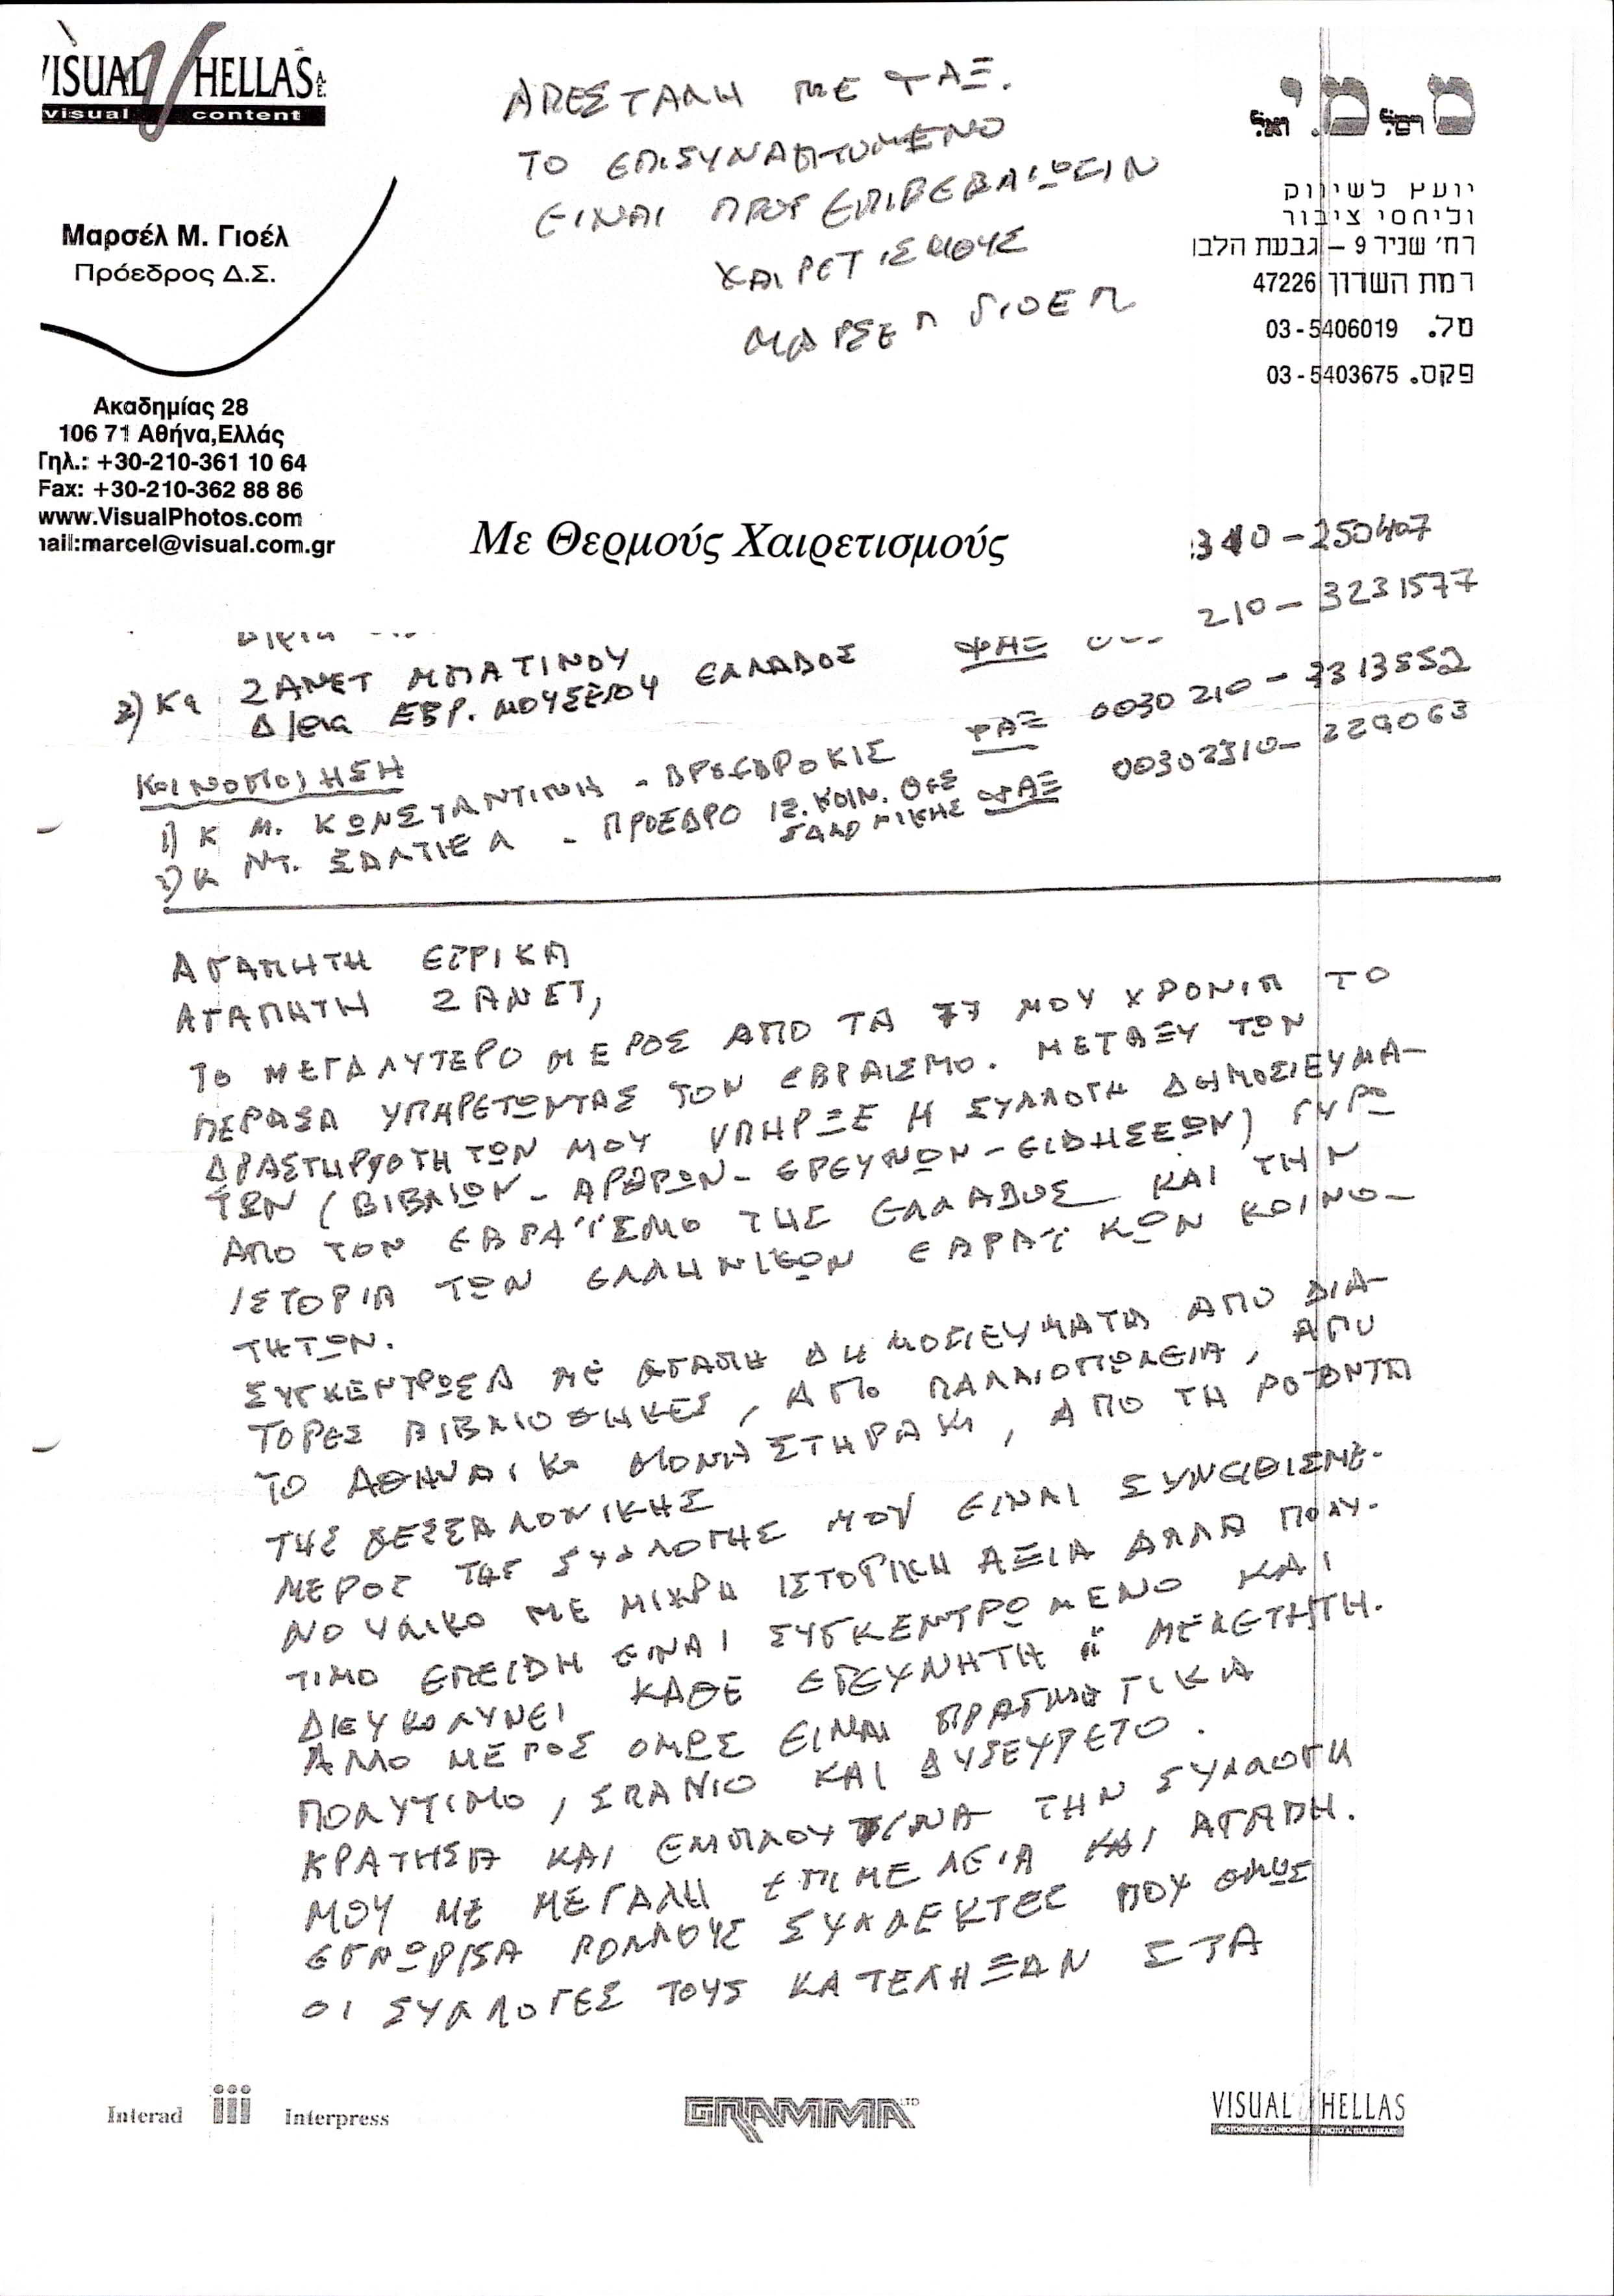 VISUAL HELLAS A.E.
visual content
Μαρσέλ Μ. Γιοέλ
Πρόεδρος Δ.Σ.
Ακαδημίας 28
106 71 Αθήνα,Ελλάς
Τηλ.: +30-210-361 10 64
Fax: +30-210-362 88 86
www.VisualPhotos.com
mail:marcel@visual.com.gr
ΑΠΕΣΤΑΛΗ ΜΕ ΦΑΞ.
ΤΟ ΕΠΙΣΥΝΑΠΤΟΜΕΝΟ
ΕΙΝΑΙ ΠΡΟΣ ΕΠΙΒΕΒΑΙΩΣΙΝ
ΧΑΙΡΕΤΙΣΜΟΥΣ
ΜΑΡΣΕΛ ΓΙΟΕΛ
Με Θερμούς Χαιρετισμούς
יועץ לשיווק
וליחסי ציבור
רח' שניר 9 – גבעת הלבו
רמת השרון 47226
טל. 03-5406019
פקס. 03-5403675
310-250407
210-3231577
2) Κα ΖΑΝΕΤ ΜΠΑΤΙΝΟΥ
Δ/ρια ΕΒΡ. ΜΟΥΣΕΙΟΥ ΕΛΛΑΔΟΣ ΦΑΞ
ΚΟΙΝΟΠΟΙΗΣΗ
1) Κ Μ. ΚΩΝΣΤΑΝΤΙΝΗ - ΠΡΟΕΔΡΟ ΚΙΣ ΦΑΞ 0030 210-3313552
2) Κ ΝΤ. ΣΑΛΤΙΕΛ - ΠΡΟΕΔΡΟ ΙΣ. ΚΟΙΝ. ΘΕΣ
ΣΑΛΟΝΙΚΗΣ ΦΑΞ 00302310-229063
ΑΓΑΠΗΤΗ ΕΣΡΙΚΑ
ΑΓΑΠΗΤΗ ΖΑΝΕΤ,
ΤΟ ΜΕΓΑΛΥΤΕΡΟ ΜΕΡΟΣ ΑΠΟ ΤΑ 77 ΜΟΥ ΧΡΟΝΙΑ ΤΟ
ΠΕΡΑΣΑ ΥΠΗΡΕΤΩΝΤΑΣ ΤΟΝ ΕΒΡΑΙΣΜΟ. ΜΕΤΑΞΥ ΤΩΝ
ΔΡΑΣΤΗΡΙΟΤΗΤΩΝ ΜΟΥ ΥΠΗΡΞΕ Η ΣΥΛΛΟΓΗ ΔΗΜΟΣΙΕΥΜΑ-
ΤΩΝ (ΒΙΒΛΙΩΝ - ΑΡΘΡΩΝ - ΕΡΕΥΝΩΝ - ΕΙΔΗΣΕΩΝ) ΓΥΡΩ
ΑΠΟ ΤΟΝ ΕΒΡΑΪΣΜΟ ΤΗΣ ΕΛΛΑΔΟΣ ΚΑΙ ΤΗΝ
ΙΣΤΟΡΙΑ ΤΩΝ ΕΛΛΗΝΙΚΩΝ ΕΒΡΑΪΚΩΝ ΚΟΙΝΟ-
ΤΗΤΩΝ.
ΣΥΓΚΕΝΤΡΩΣΑ ΜΕ ΑΓΑΠΗ ΔΗΜΟΣΙΕΥΜΑΤΑ ΑΠΟ ΔΙΑ-
ΤΟΡΕΣ ΒΙΒΛΙΟΘΗΚΕΣ, ΑΠΟ ΠΑΛΑΙΟΠΩΛΕΙΑ, ΑΠΟ
ΤΟ ΑΘΗΝΑΙΚΟ ΜΟΝΑΣΤΗΡΑΚΙ, ΑΠΟ ΤΗ ΡΟΤΟΝΤΑ
ΤΗΣ ΘΕΣΣΑΛΟΝΙΚΗΣ
ΜΕΡΟΣ ΤΗΣ ΣΥΛΛΟΓΗΣ ΜΟΥ ΕΙΝΑΙ ΣΥΝΕΙΘΙΣΜΕ-
ΝΟ ΥΛΙΚΟ ΜΕ ΜΙΚΡΗ ΙΣΤΟΡΙΚΗ ΑΞΙΑ ΑΛΛΑ ΠΟΛΥ-
ΤΙΜΟ ΕΠΕΙΔΗ ΕΙΝΑΙ ΣΥΓΚΕΝΤΡΩΜΕΝΟ ΚΑΙ
ΔΙΕΥΚΟΛΥΝΕΙ ΚΑΘΕ ΕΡΕΥΝΗΤΗ Ή ΜΕΛΕΤΗΤΗ.
ΑΛΛΟ ΜΕΡΟΣ ΟΜΩΣ ΕΙΝΑΙ ΠΡΑΓΜΑΤΙΚΑ
ΠΟΛΥΤΙΜΟ, ΣΠΑΝΙΟ ΚΑΙ ΔΥΣΕΥΡΕΤΟ.
ΚΡΑΤΗΣΑ ΚΑΙ ΕΜΠΛΟΥΤΙΝΑ ΤΗΝ ΣΥΛΛΟΓΗ
ΜΟΥ ΜΕ ΜΕΓΑΛΗ ΕΠΙΜΕΛΕΙΑ ΚΑΙ ΑΓΑΠΗ.
ΕΓΝΩΡΙΣΑ ΠΟΛΛΟΥΣ ΣΥΛΛΕΚΤΕΣ ΠΟΥ ΟΜΩΣ
ΟΙ ΣΥΛΛΟΓΕΣ ΤΟΥΣ ΚΑΤΕΛΗΞΑΝ ΣΤΑ
Interad iii Interpress
GRAMMA LTD
VISUAL HELLAS